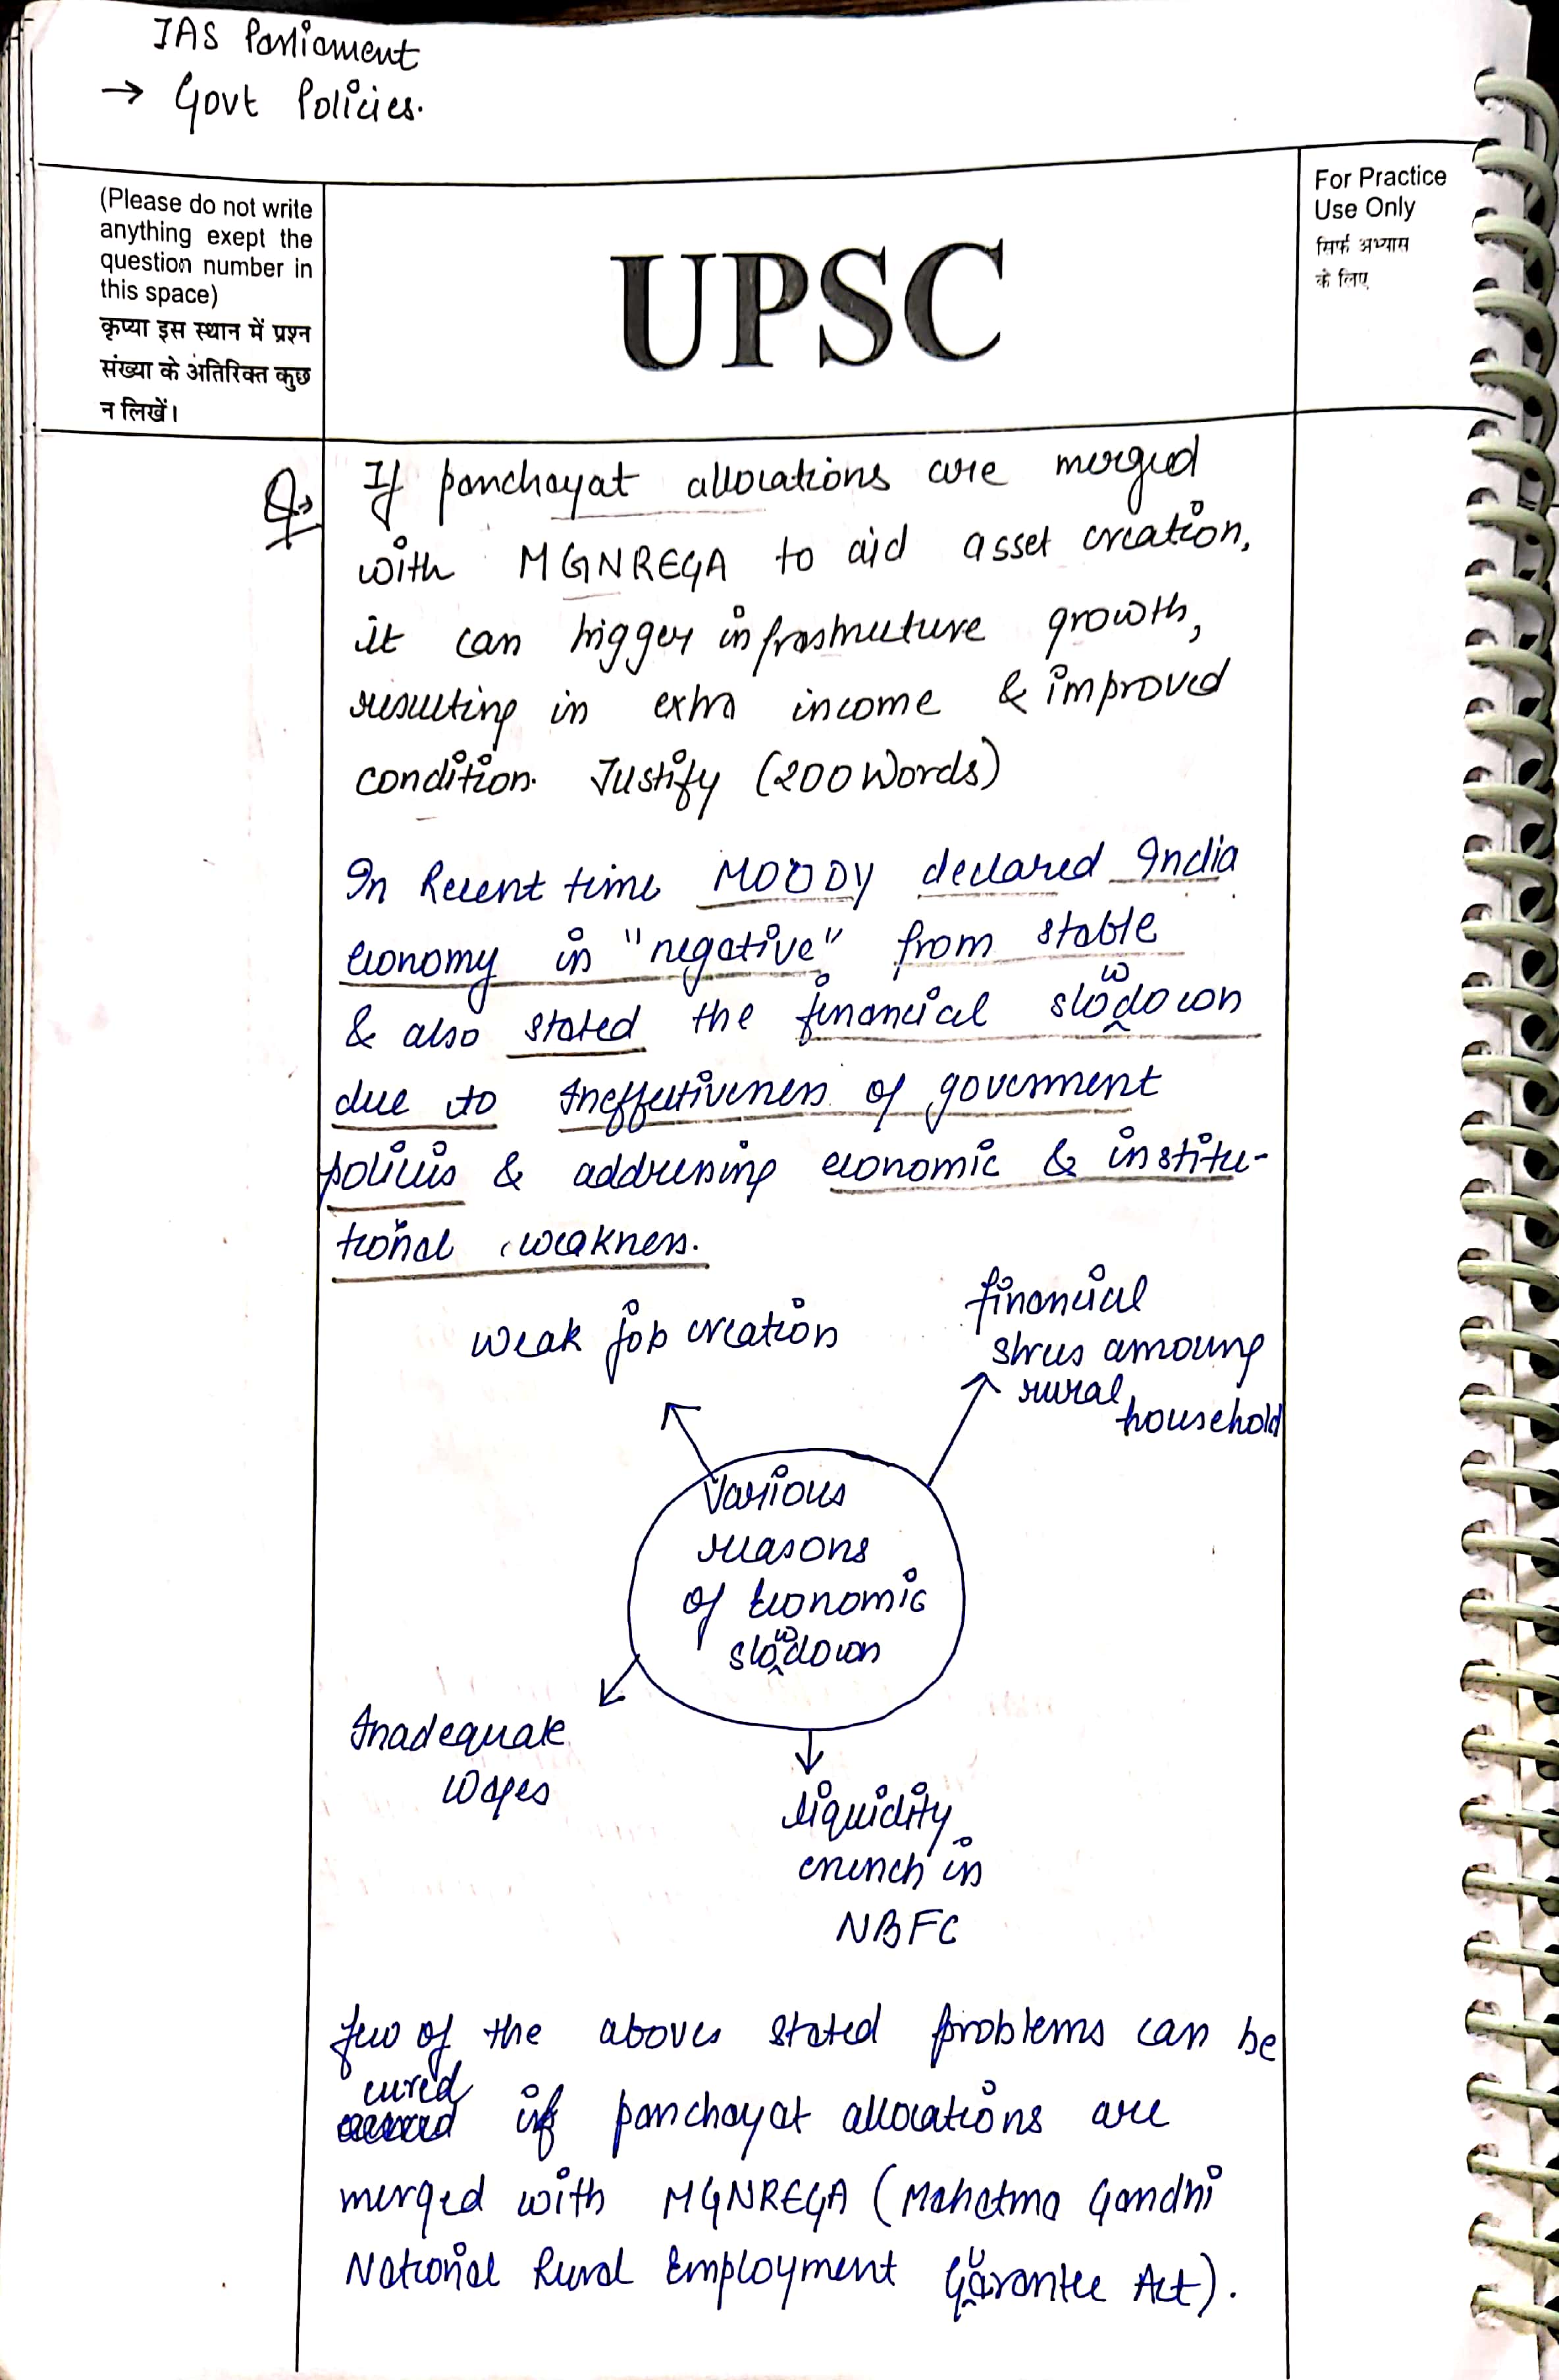 IAS Parliament
→ Govt Policies.
(Please do not write
anything exept the
question number in
this space)
कृप्या इस स्थान में प्रश्न
संख्या के अतिरिक्त कुछ
न लिखें।
UPSC
For Practice
Use Only
सिर्फ अभ्यास
के लिए
Q→ If panchayat allocations are merged
with MGNREGA to aid asset creation,
it can trigger infrastructure growth,
resulting in extra income & improved
condition. Justify (200 Words)
In Recent time MOODY declared India
economy in "negative" from stable
& also stated the financial slowdown
due to Ineffectiveness of government
policies & addressing economic & institu-
tional weakness.
Weak job creation
financial
stress amoung
rural
household
Various
reasons
of Economic
slowdown
Inadequate
Wages
liquidity
crunch in
NBFC
few of the above stated problems can be
cured if panchayat allocations are
merged with MGNREGA (Mahatma Gandhi
National Rural Employment Guarantee Act).